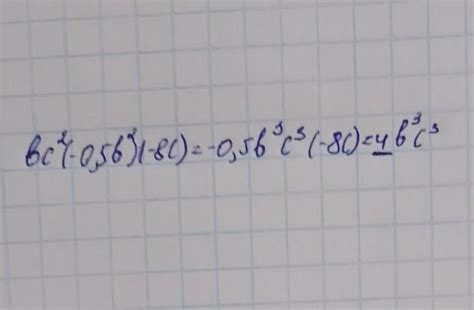 bc²(-0,5b²)(-8c)=-0,5b³c³(-8c)=4b³c³